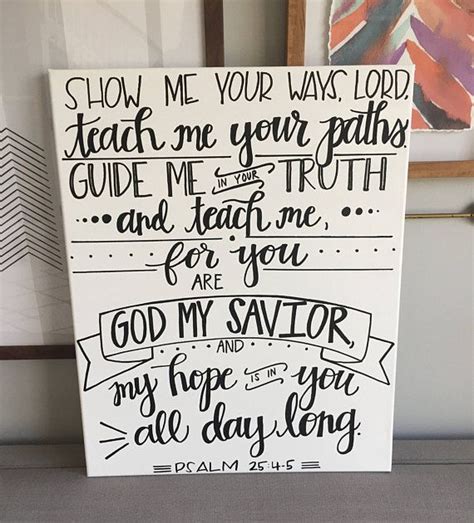 SHOW ME YOUR WAYS, LORD,
teach me your paths.
GUIDE ME IN YOUR TRUTH
and teach me,
for you
ARE
GOD MY SAVIOR,
AND
my hope IS IN you
all day long.
PSALM 25:4-5